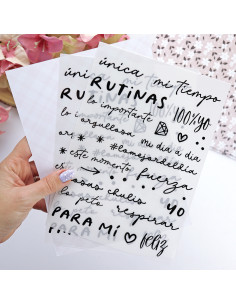 única mi tiempo
úni RUTINAS
RU lo importante 100%yo
lo i orgullosa mi día a día
or * * * #lomejordeldía
* este momento fuerza
es chulis yo
lo peto respirar
PARA MÍ feliz